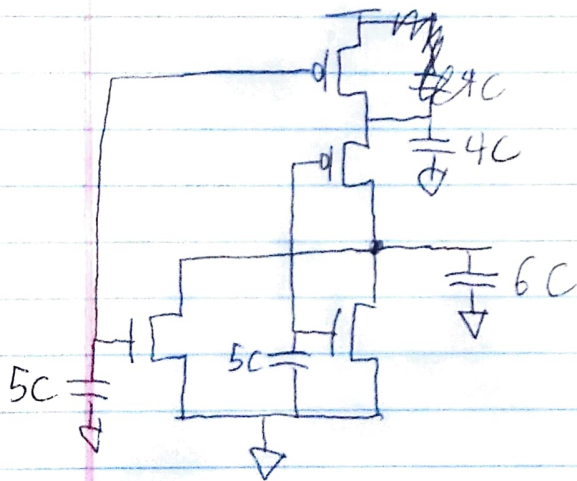 4C
6C
5C
5C